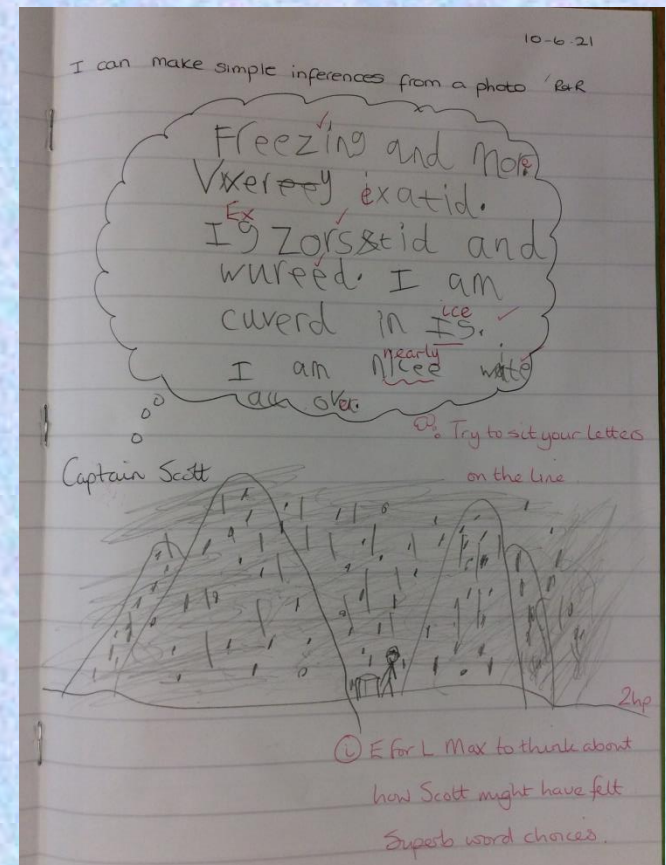 10-6-21
I can make simple inferences from a photo R&R
Freezing and more
Vxereey exatid.
Ex
Ig zorstid and
wureed. I am
curverd in Is.
ice
I am nlcee wite
nearly
all over.
Try to sit your letters
on the line.
Captain Scott
2hp
i E for L Max to think about
how Scott might have felt
Superb word choices.